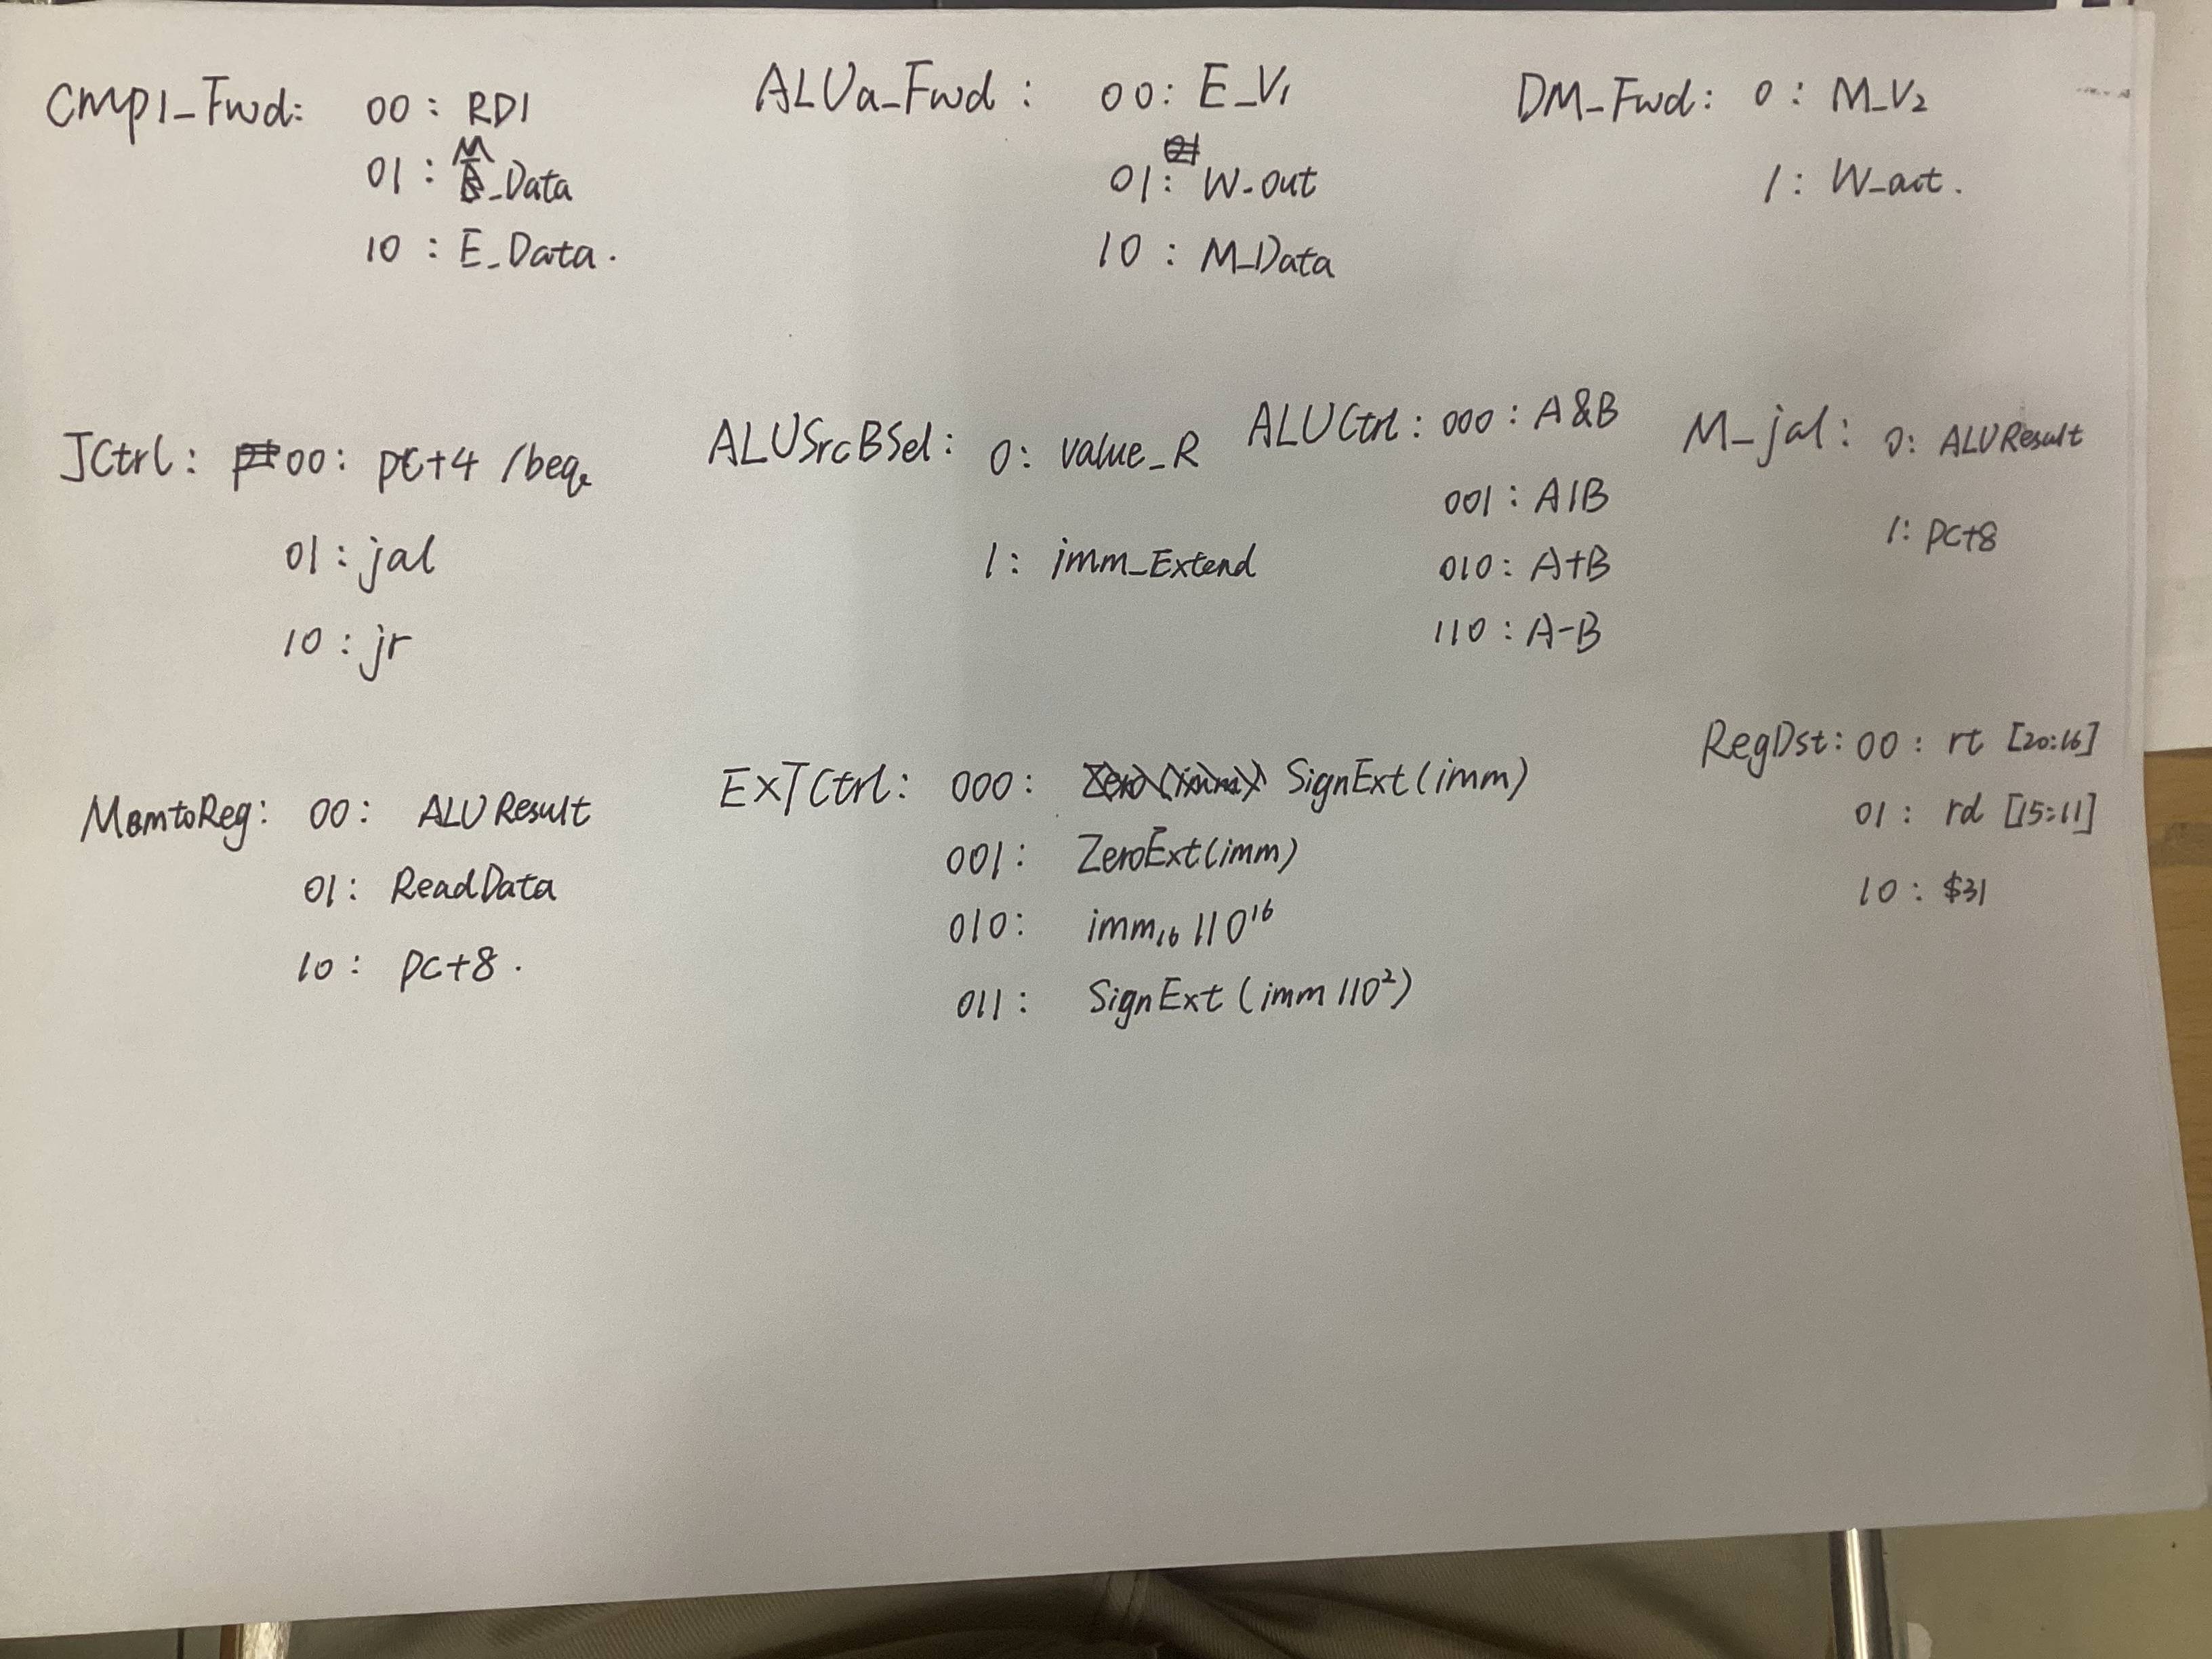 CMP1_Fwd: 00: RD1
01: M_Data
10: E_Data.
ALUa_Fwd: 00: E_V1
01: W_out
10: M_Data
DM_Fwd: 0: M_V2
1: W_out.
JCtrl: 00: pc+4 /beq
01: jal
10: jr
ALUSrcBSel: 0: value_R
1: imm_Extend
ALUCtrl: 000: A&B
001: A|B
010: A+B
110: A-B
M_jal: 0: ALUResult
1: pc+8
MemtoReg: 00: ALUResult
01: ReadData
10: pc+8.
EXTCtrl: 000: SignExt(imm)
001: ZeroExt(imm)
010: imm₁₆||0¹⁶
011: SignExt(imm||0²)
RegDst: 00: rt [20:16]
01: rd [15:11]
10: $31